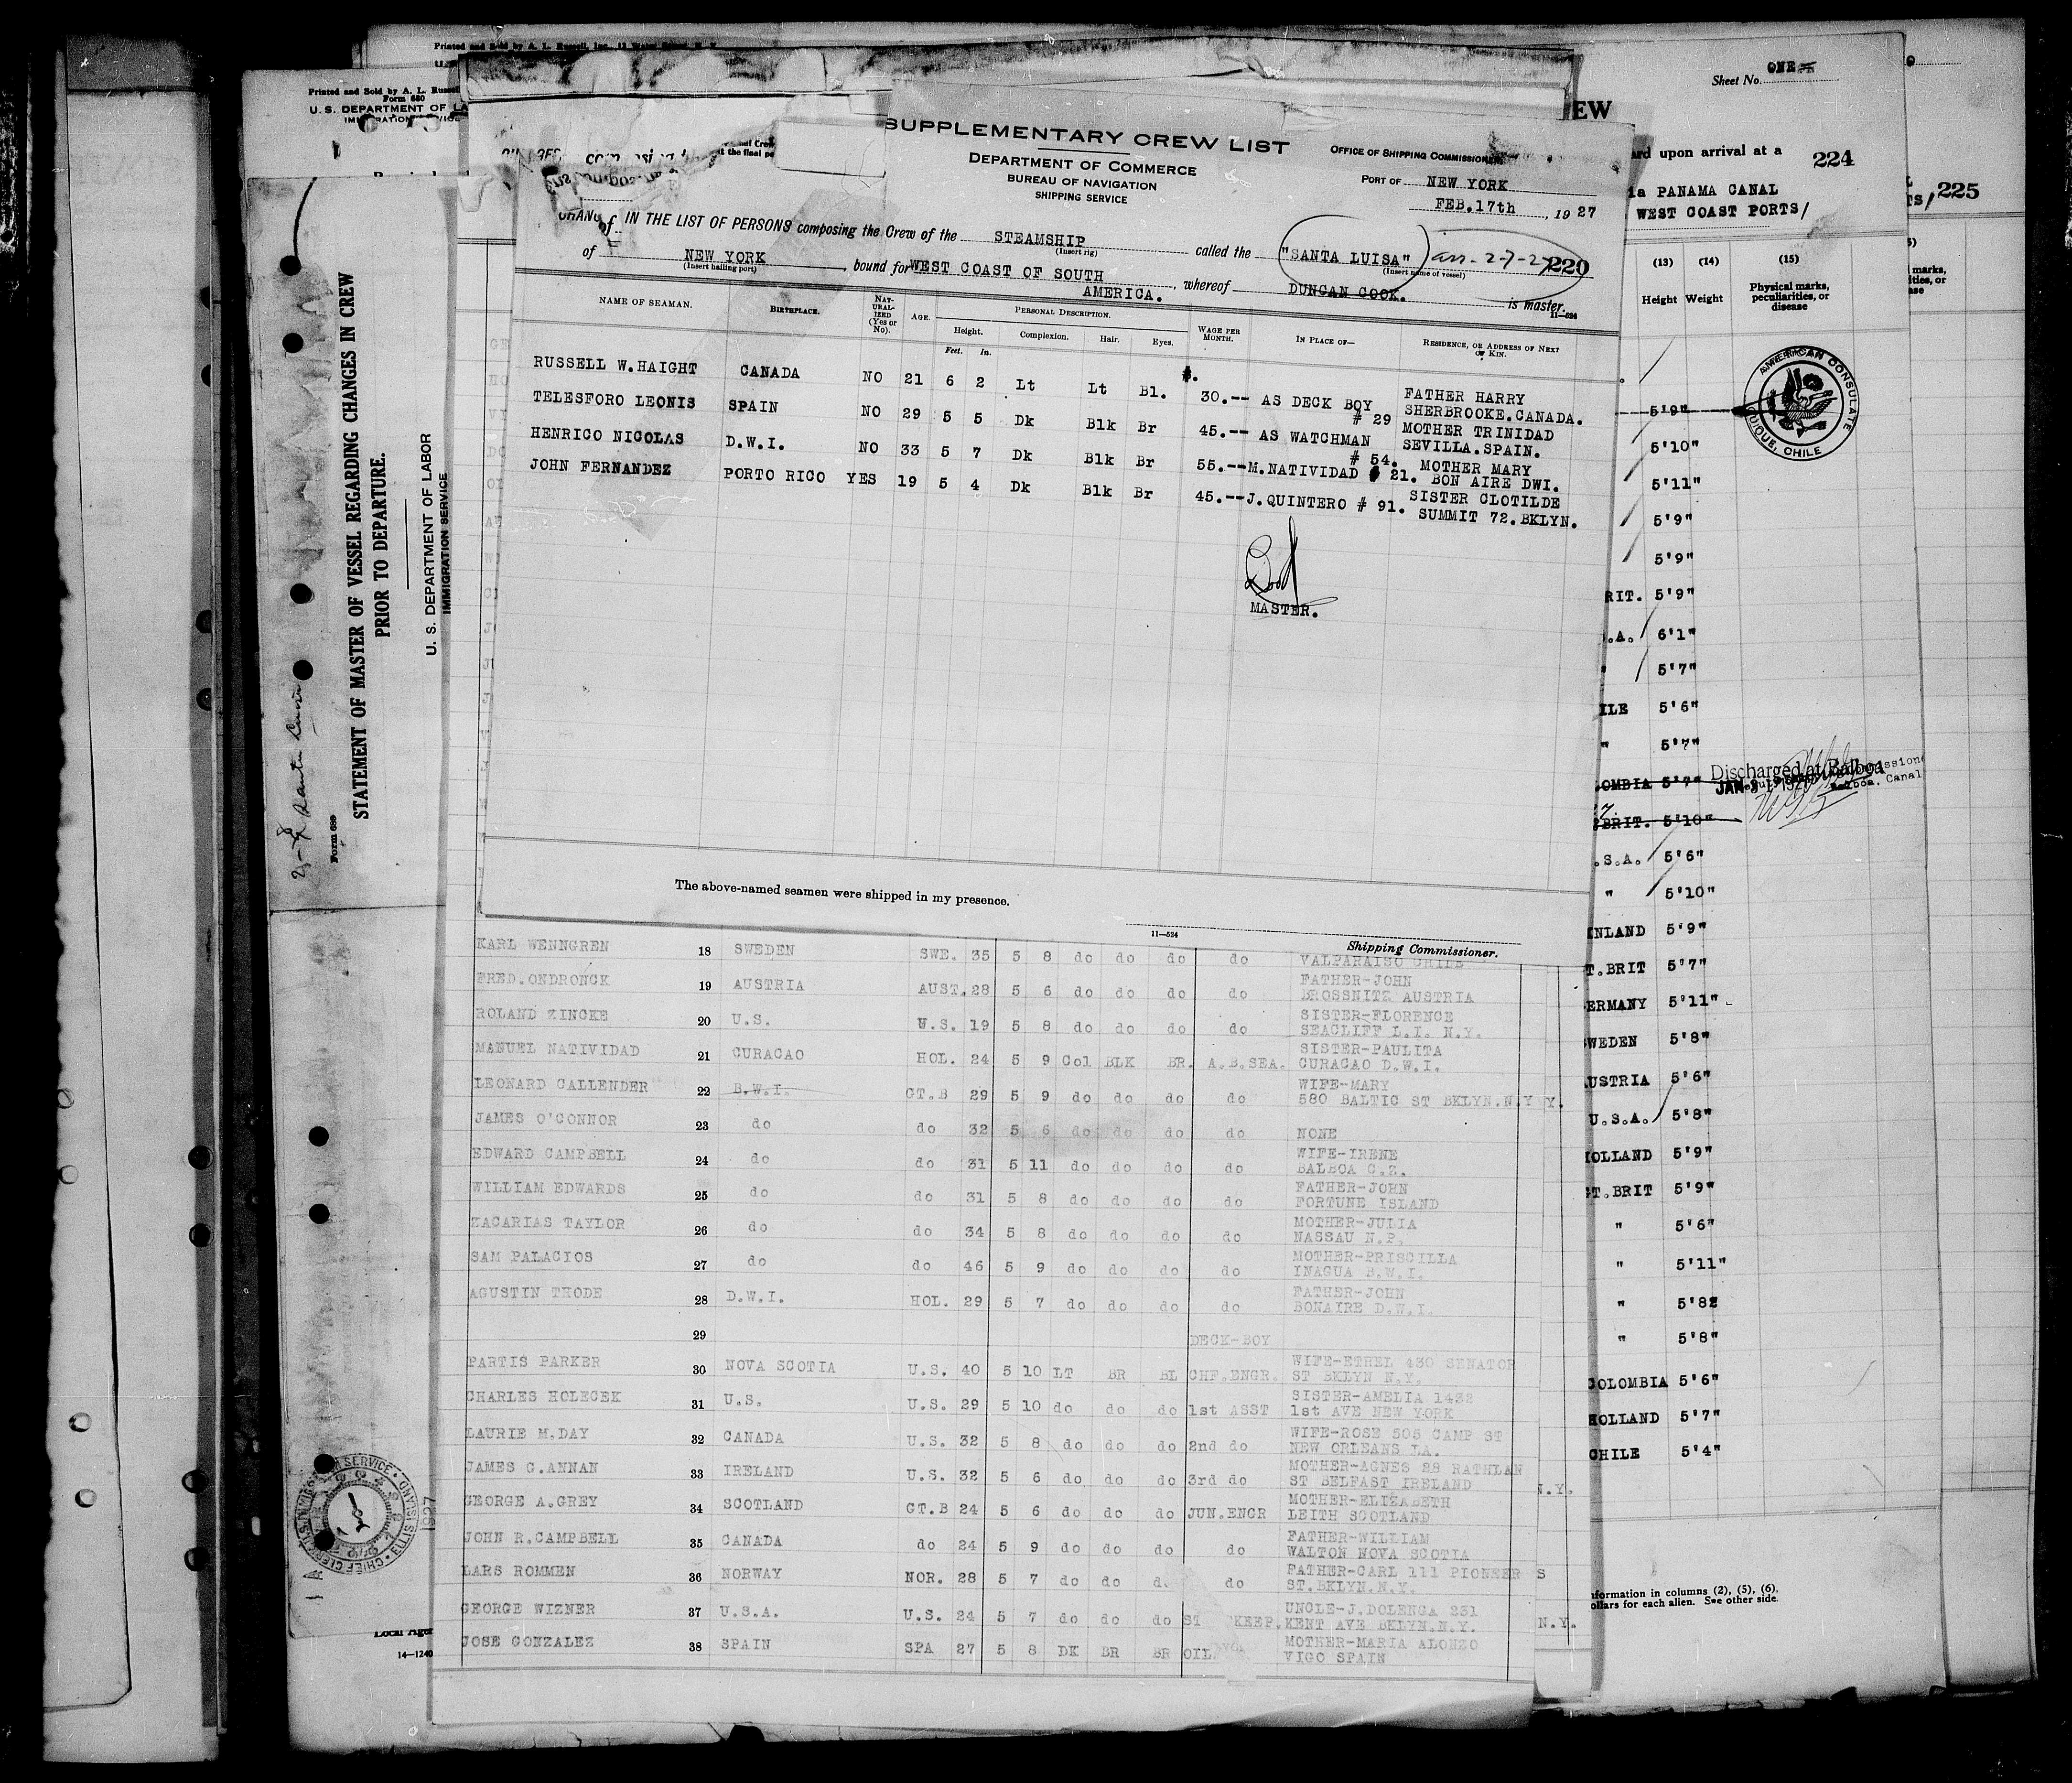 Printed and Sold by A. L. Russell, Inc.
Printed and Sold by A. L. Russell
Form 680
U. S. DEPARTMENT OF LA
Sheet No. ONE
EW
ard upon arrival at a
224
ia PANAMA CANAL
WEST COAST PORTS/
225
SUPPLEMENTARY CREW LIST
DEPARTMENT OF COMMERCE
BUREAU OF NAVIGATION
SHIPPING SERVICE
OFFICE OF SHIPPING COMMISSIONER
PORT OF NEW YORK
FEB.17th, 1927
IN THE LIST OF PERSONS composing the Crew of the STEAMSHIP called the "SANTA LUISA"
(Insert rig)
(Insert name of vessel)
220
of NEW YORK, bound for WEST COAST OF SOUTH AMERICA., whereof DUNCAN COOK. is master.
(Insert hailing port)
11—524
NAME OF SEAMAN. BIRTHPLACE. NAT-URAL-IZED (Yes or No). AGE. PERSONAL DESCRIPTION. WAGE PER MONTH. IN PLACE OF— RESIDENCE, OR ADDRESS OF NEXT OF KIN.
Height. Complexion. Hair. Eyes.
Feet. In.
RUSSELL W.HAIGHT CANADA NO 21 6 2 Lt Lt Bl. 30.-- AS DECK BOY # 29 FATHER HARRY SHERBROOKE.CANADA.
TELESFORO LEONIS SPAIN NO 29 5 5 Dk Blk Br 45.-- AS WATCHMAN # 54. MOTHER TRINIDAD SEVILLA.SPAIN.
HENRICO NICOLAS D.W.I. NO 33 5 7 Dk Blk Br 55.--M.NATIVIDAD # 21. MOTHER MARY BON AIRE DWI.
JOHN FERNANDEZ PORTO RICO YES 19 5 4 Dk Blk Br 45.--J.QUINTERO # 91. SISTER CLOTILDE SUMMIT 72.BKLYN.
MASTER.
The above-named seamen were shipped in my presence.
11—524
Shipping Commissioner.
KARL WENNGREN 18 SWEDEN SWE. 35 5 8 do do do do VALPARAISO CHILE
FRED.ONDRONCK 19 AUSTRIA AUST.28 5 6 do do do do FATHER-JOHN BROSSNITZ AUSTRIA
ROLAND ZINCKE 20 U.S. U.S. 19 5 8 do do do do SISTER-FLORENCE SEACLIFF L.I. N.Y.
MANUEL NATIVIDAD 21 CURACAO HOL. 24 5 9 Col BLK BR. A.B.SEA. SISTER-PAULITA CURACAO D.W.I.
LEONARD CALLENDER 22 B.W.I. GT.B 29 5 9 do do do do WIFE-MARY 580 BALTIC ST BKLYN.N.Y
JAMES O'CONNOR 23 do do 32 5 6 do do do do NONE
EDWARD CAMPBELL 24 do do 31 5 11 do do do do WIFE-IRENE BALBOA C.Z.
WILLIAM EDWARDS 25 do do 31 5 8 do do do do FATHER-JOHN FORTUNE ISLAND
ZACARIAS TAYLOR 26 do do 34 5 8 do do do do MOTHER-JULIA NASSAU N.P.
SAM PALACIOS 27 do do 46 5 9 do do do do MOTHER-PRISCILLA INAGUA B.W.I.
AGUSTIN THODE 28 D.W.I. HOL. 29 5 7 do do do do FATHER-JOHN BONAIRE D.W.I.
29 DECK-BOY
PARTIS PARKER 30 NOVA SCOTIA U.S. 40 5 10 LT BR BL CHF.ENGR. WIFE-ETHEL 430 SENATOR ST BKLYN N.Y.
CHARLES HOLECEK 31 U.S. U.S. 29 5 10 do do do 1st ASST SISTER-AMELIA 1432 1st AVE NEW YORK
LAURIE M.DAY 32 CANADA U.S. 32 5 8 do do do 2nd do WIFE-ROSE 505 CAMP ST NEW ORLEANS LA.
JAMES G.ANNAN 33 IRELAND U.S. 32 5 6 do do do 3rd do MOTHER-AGNES 28 RATHLAN ST BELFAST IRELAND
GEORGE A.GREY 34 SCOTLAND GT.B 24 5 6 do do do JUN.ENGR MOTHER-ELIZABETH LEITH SCOTLAND
JOHN R.CAMPBELL 35 CANADA do 24 5 9 do do do do FATHER-WILLIAM WALTON NOVA SCOTIA
LARS ROMMEN 36 NORWAY NOR. 28 5 7 do do d. do FATHER-CARL 111 PIONEER ST.BKLYN.N.Y.
GEORGE WIZNER 37 U.S.A. U.S. 24 5 7 do do do ST KEEP. UNCLE-J.DOLENGA 231 KENT AVE BKLYN.N.Y.
JOSE GONZALEZ 38 SPAIN SPA 27 5 8 DK BR BR OIL MOTHER-MARIA ALONZO VIGO SPAIN
STATEMENT OF MASTER OF VESSEL REGARDING CHANGES IN CREW
PRIOR TO DEPARTURE.
U. S. DEPARTMENT OF LABOR
IMMIGRATION SERVICE
Form 689
1927
Local Agen
14—1240
(13) (14) (15)
Height Weight Physical marks, peculiarities, or disease
AMERICAN CONSULATE
IQUIQUE, CHILE
5'9"
5'10"
5'11"
5'9"
5'9"
RIT. 5'9"
.A. 6'1"
" 5'7"
ILE 5'6"
" 5'7"
OMBIA 5'7"
Discharged at Balboa
BRIT. 5'10"
.S.A. 5'6"
" 5'10"
INLAND 5'9"
T.BRIT 5'7"
ERMANY 5'11"
WEDEN 5'8"
USTRIA 5'6"
U.S.A. 5'8"
OLLAND 5'9"
T.BRIT 5'9"
" 5'6"
" 5'11"
" 5'82
" 5'8"
COLOMBIA 5'6"
HOLLAND 5'7"
CHILE 5'4"
N.Y.
nformation in columns (2), (5), (6).
ollars for each alien. See other side.
N.Y.